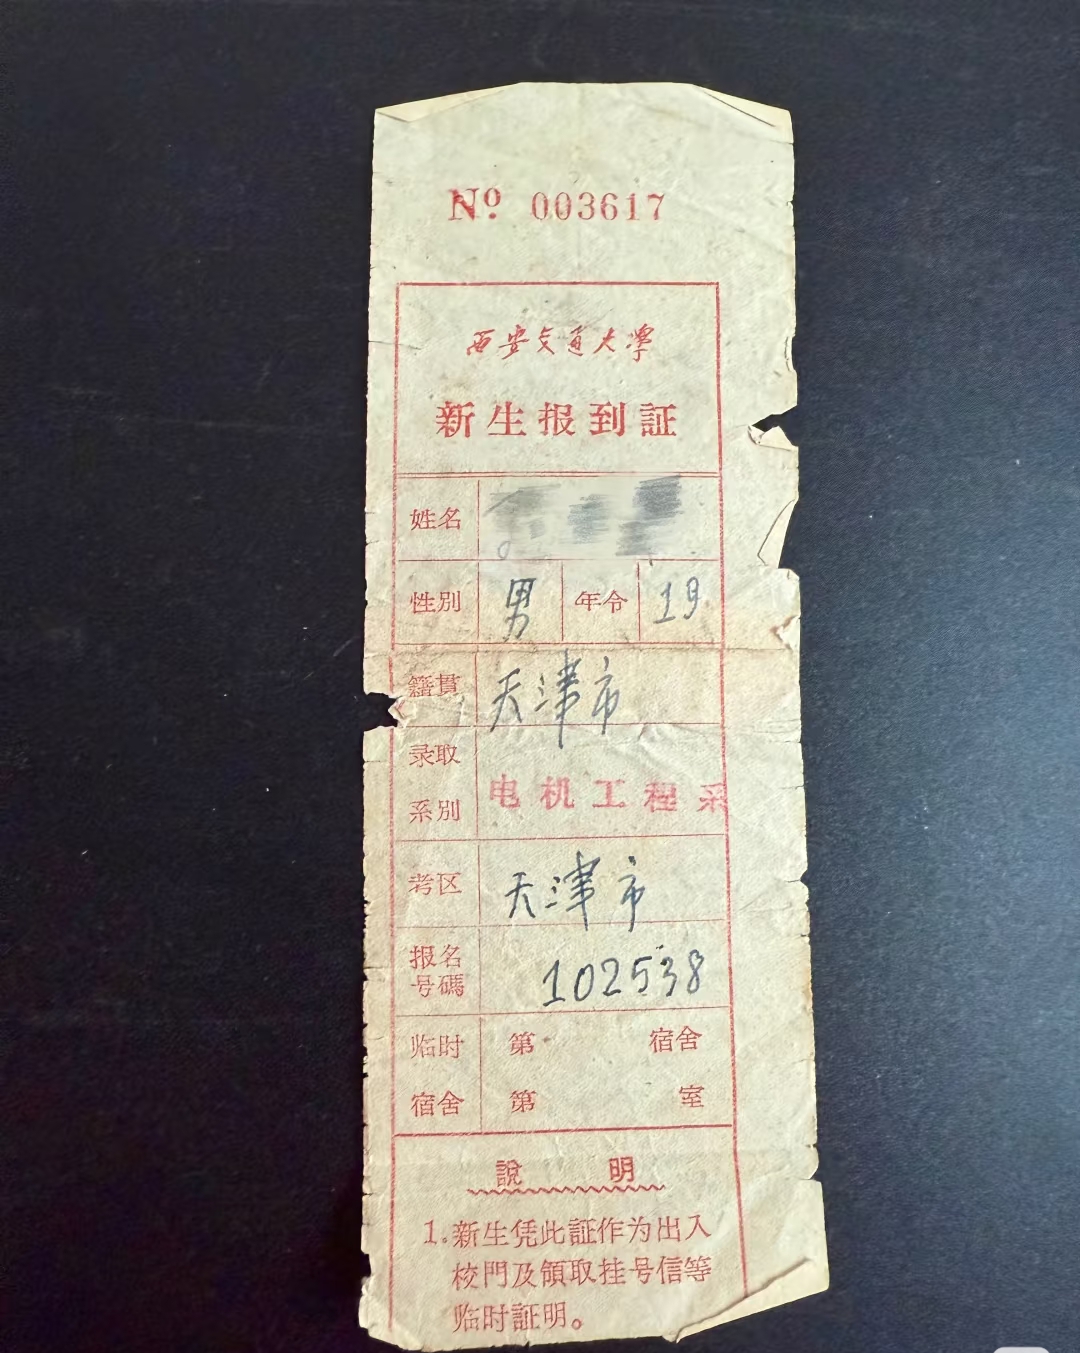 Nº 003617
西安交通大學
新生报到証
姓名
性別 男 年令 19
籍貫 天津市
录取系別 电机工程系
考区 天津市
报名号碼 102538
临时宿舍 第 宿舍
第 室
說 明
1. 新生凭此証作为出入
校門及領取挂号信等
临时証明。